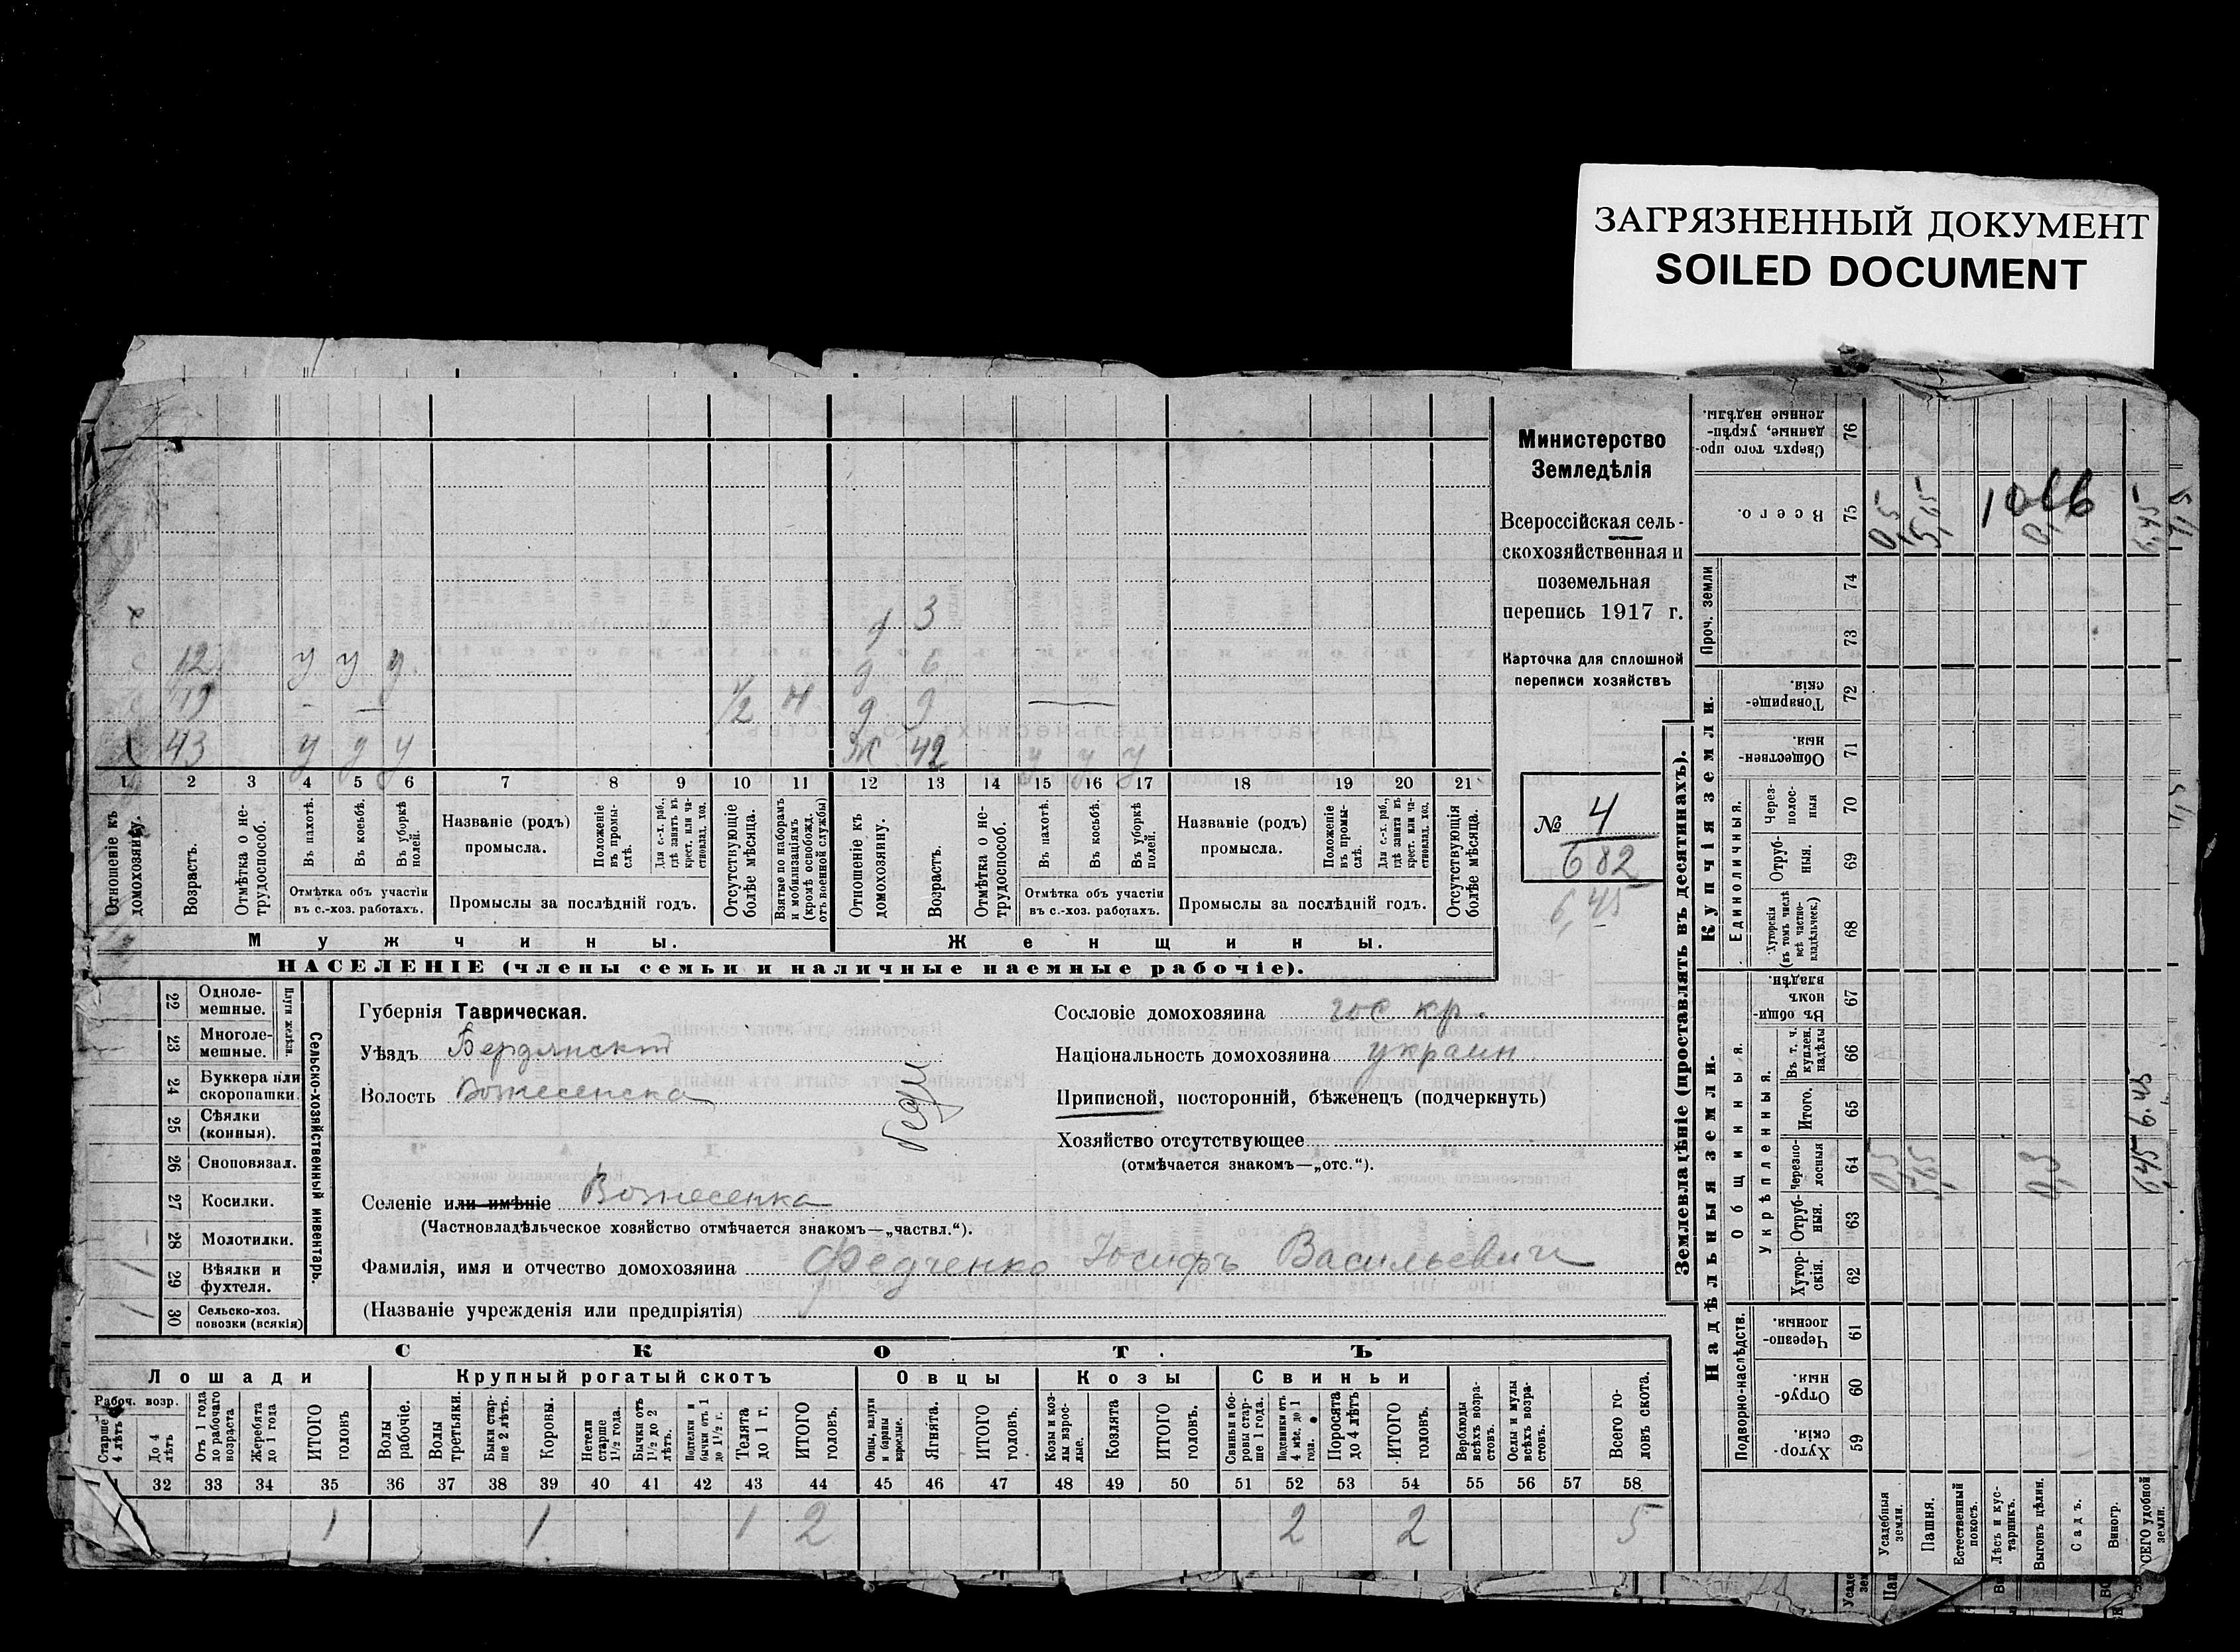 ЗАГРЯЗНЕННЫЙ ДОКУМЕНТ
SOILED DOCUMENT
Министерство
Земледѣлія
Всероссійская сель-
скохозяйственная и
поземельная
перепись 1917 г.
Карточка для сплошной
переписи хозяйствъ
№ 4
682
6,45
3
12 у у у д 6
19 - - 1/2 н д 9
43 у у у ж 42 у у у
1 2 3 4 5 6 7 8 9 10 11 12 13 14 15 16 17 18 19 20 21
Отношеніе къ домохозяину.
Возрастъ.
Отмѣтка о не-трудоспособ.
Въ пахотѣ.
Въ косьбѣ.
Въ уборкѣ полей.
Отмѣтка объ участіи
въ с.-хоз. работахъ.
Названіе (родъ)
промысла.
Положеніе въ промы-слѣ.
Для с.-х. раб., гдѣ занятъ въ крест. или ча-стновлад. хоз.
Промыслы за послѣдній годъ.
Отсутствующіе болѣе мѣсяца.
Взятые по наборамъ и мобилизаціямъ (кромѣ освобожд. отъ военной службы)
Отношеніе къ домохозяину.
Возрастъ.
Отмѣтка о не-трудоспособ.
Въ пахотѣ.
Въ косьбѣ.
Въ уборкѣ полей.
Отмѣтка объ участіи
въ с.-хоз. работахъ.
Названіе (родъ)
промысла.
Положеніе въ промы-слѣ.
Для с.-х. раб., гдѣ занята въ крест. или ча-стновлад. хоз.
Промыслы за послѣдній годъ.
Отсутствующія болѣе мѣсяца.
Мужчины. Женщины.
НАСЕЛЕНІЕ (члены семьи и наличные наемные рабочіе).
Сельско-хозяйственный инвентарь.
Плуги желѣзн.
22 Одноле-мешные.
23 Многоле-мешные.
24 Буккера или скоропашки.
25 Сѣялки (конныя).
26 Сноповязал.
27 Косилки.
28 Молотилки.
29 Вѣялки и фухтеля. 1
30 Сельско-хоз. повозки (всякія) 1
Губернія Таврическая.
Уѣздъ Бердянскій
Волость Вознесенска
Селеніе или имѣніе Вознесенка
(Частновладѣльческое хозяйство отмѣчается знакомъ—„частвл.“).
Фамилія, имя и отчество домохозяина Федченко Іосифъ Васильевич
(Названіе учрежденія или предпріятія)
Сословіе домохозяина гос кр.
Національность домохозяина украин
Приписной, посторонній, бѣженецъ (подчеркнуть)
Хозяйство отсутствующее
(отмѣчается знакомъ—„отс.“).
СКОТЪ
Лошади Крупный рогатый скотъ Овцы Козы Свиньи
Рабоч. возр.
Старше 4 лѣтъ
До 4 лѣтъ
Отъ 1 года до рабочаго возраста
Жеребята до 1 года
ИТОГО головъ
Волы рабочіе.
Волы третьяки.
Быки стар-ше 2 лѣтъ.
Коровы.
Нетели старше 1½ года.
Бычки отъ 1½ до 2 лѣтъ.
Подтелки и бычки отъ 1 до 1½ г.
Телята до 1 г.
ИТОГО головъ.
Овцы, валухи и бараны взрослые.
Ягнята.
ИТОГО головъ.
Козы и коз-лы взрос-лые.
Козлята
ИТОГО головъ.
Свиньи и бо-ровы стар-ше 1 года.
Подсвинки отъ 4 мѣс. до 1 года.
Поросята до 4 лѣтъ
ИТОГО головъ.
Верблюды всѣхъ возра-стовъ.
Ослы и мулы всѣхъ возра-стовъ.
Всего го-ловъ скота.
32 33 34 35 36 37 38 39 40 41 42 43 44 45 46 47 48 49 50 51 52 53 54 55 56 57 58
1 1 1 2 2 2 5
Землевладѣніе (проставлять въ десятинахъ).
Надѣльныя земли. Купчія земли. Проч. земли
Подворно-наслѣдств.
Общинныя.
Укрѣпленныя.
Единоличныя.
Хутор-скія. 59
Отруб-ныя. 60
Черезпо-лосныя. 61
Хутор-скія. 62
Отруб-ныя. 63
Черезпо-лосныя 64
Итого. 65
Въ т. ч. куплен. надѣлы 66
Въ общи-номъ владѣн. 67
Хуторскія (въ томъ числѣ всѣ частно-владѣльческ.) 68
Отруб-ныя. 69
Через-полос-ныя 70
Обществен-ныя. 71
Товарище-скія. 72
73
74
Всего. 75
Сверхъ того про-данные, укрѣп-ленные надѣлы. 76
Усадебныя земли. 0,5 0,5
Пашня. 5,65
Естественный покосъ.
Лѣсъ и кус-тарникъ.
Выгонъ цѣлин. 0,3
Садъ.
Виногр.
ВСЕГО удобной земли. 6,45 6,45 6,45